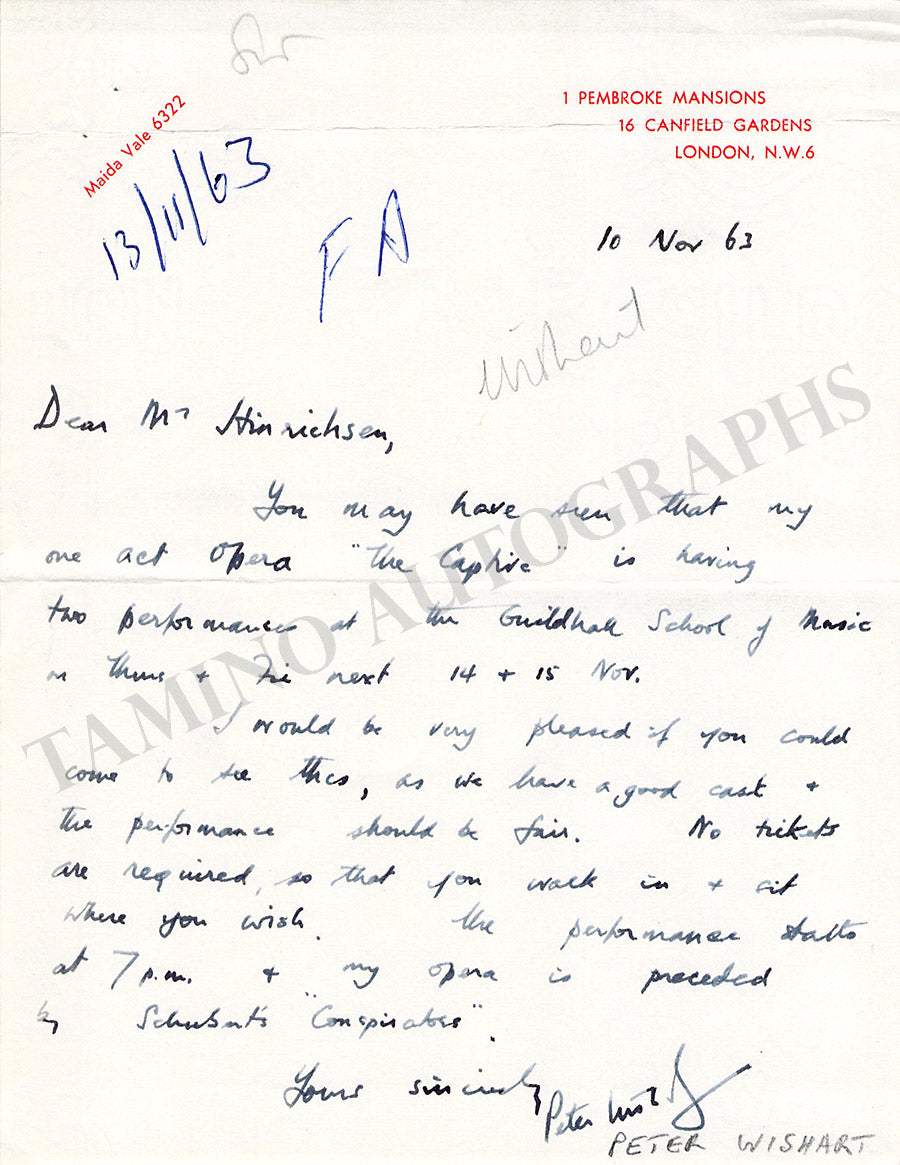 Maida Vale 6322
1 PEMBROKE MANSIONS
16 CANFIELD GARDENS
LONDON, N.W.6
13/11/63
F A
10 Nov 63
Wishart
Dear Mr Hinrichsen,
You may have seen that my
one act opera "The Captive" is having
two performances at the Guildhall School of Music
on Thurs + Fri next 14 + 15 Nov.
I would be very pleased if you could
come to see this, as we have a good cast +
the performance should be fair. No tickets
are required, so that you walk in + sit
where you wish. The performance starts
at 7 p.m. + my opera is preceded
by Schubert's "Conspirators".
Yours sincerely
Peter Wishart
PETER WISHART
TAMINO AUTOGRAPHS